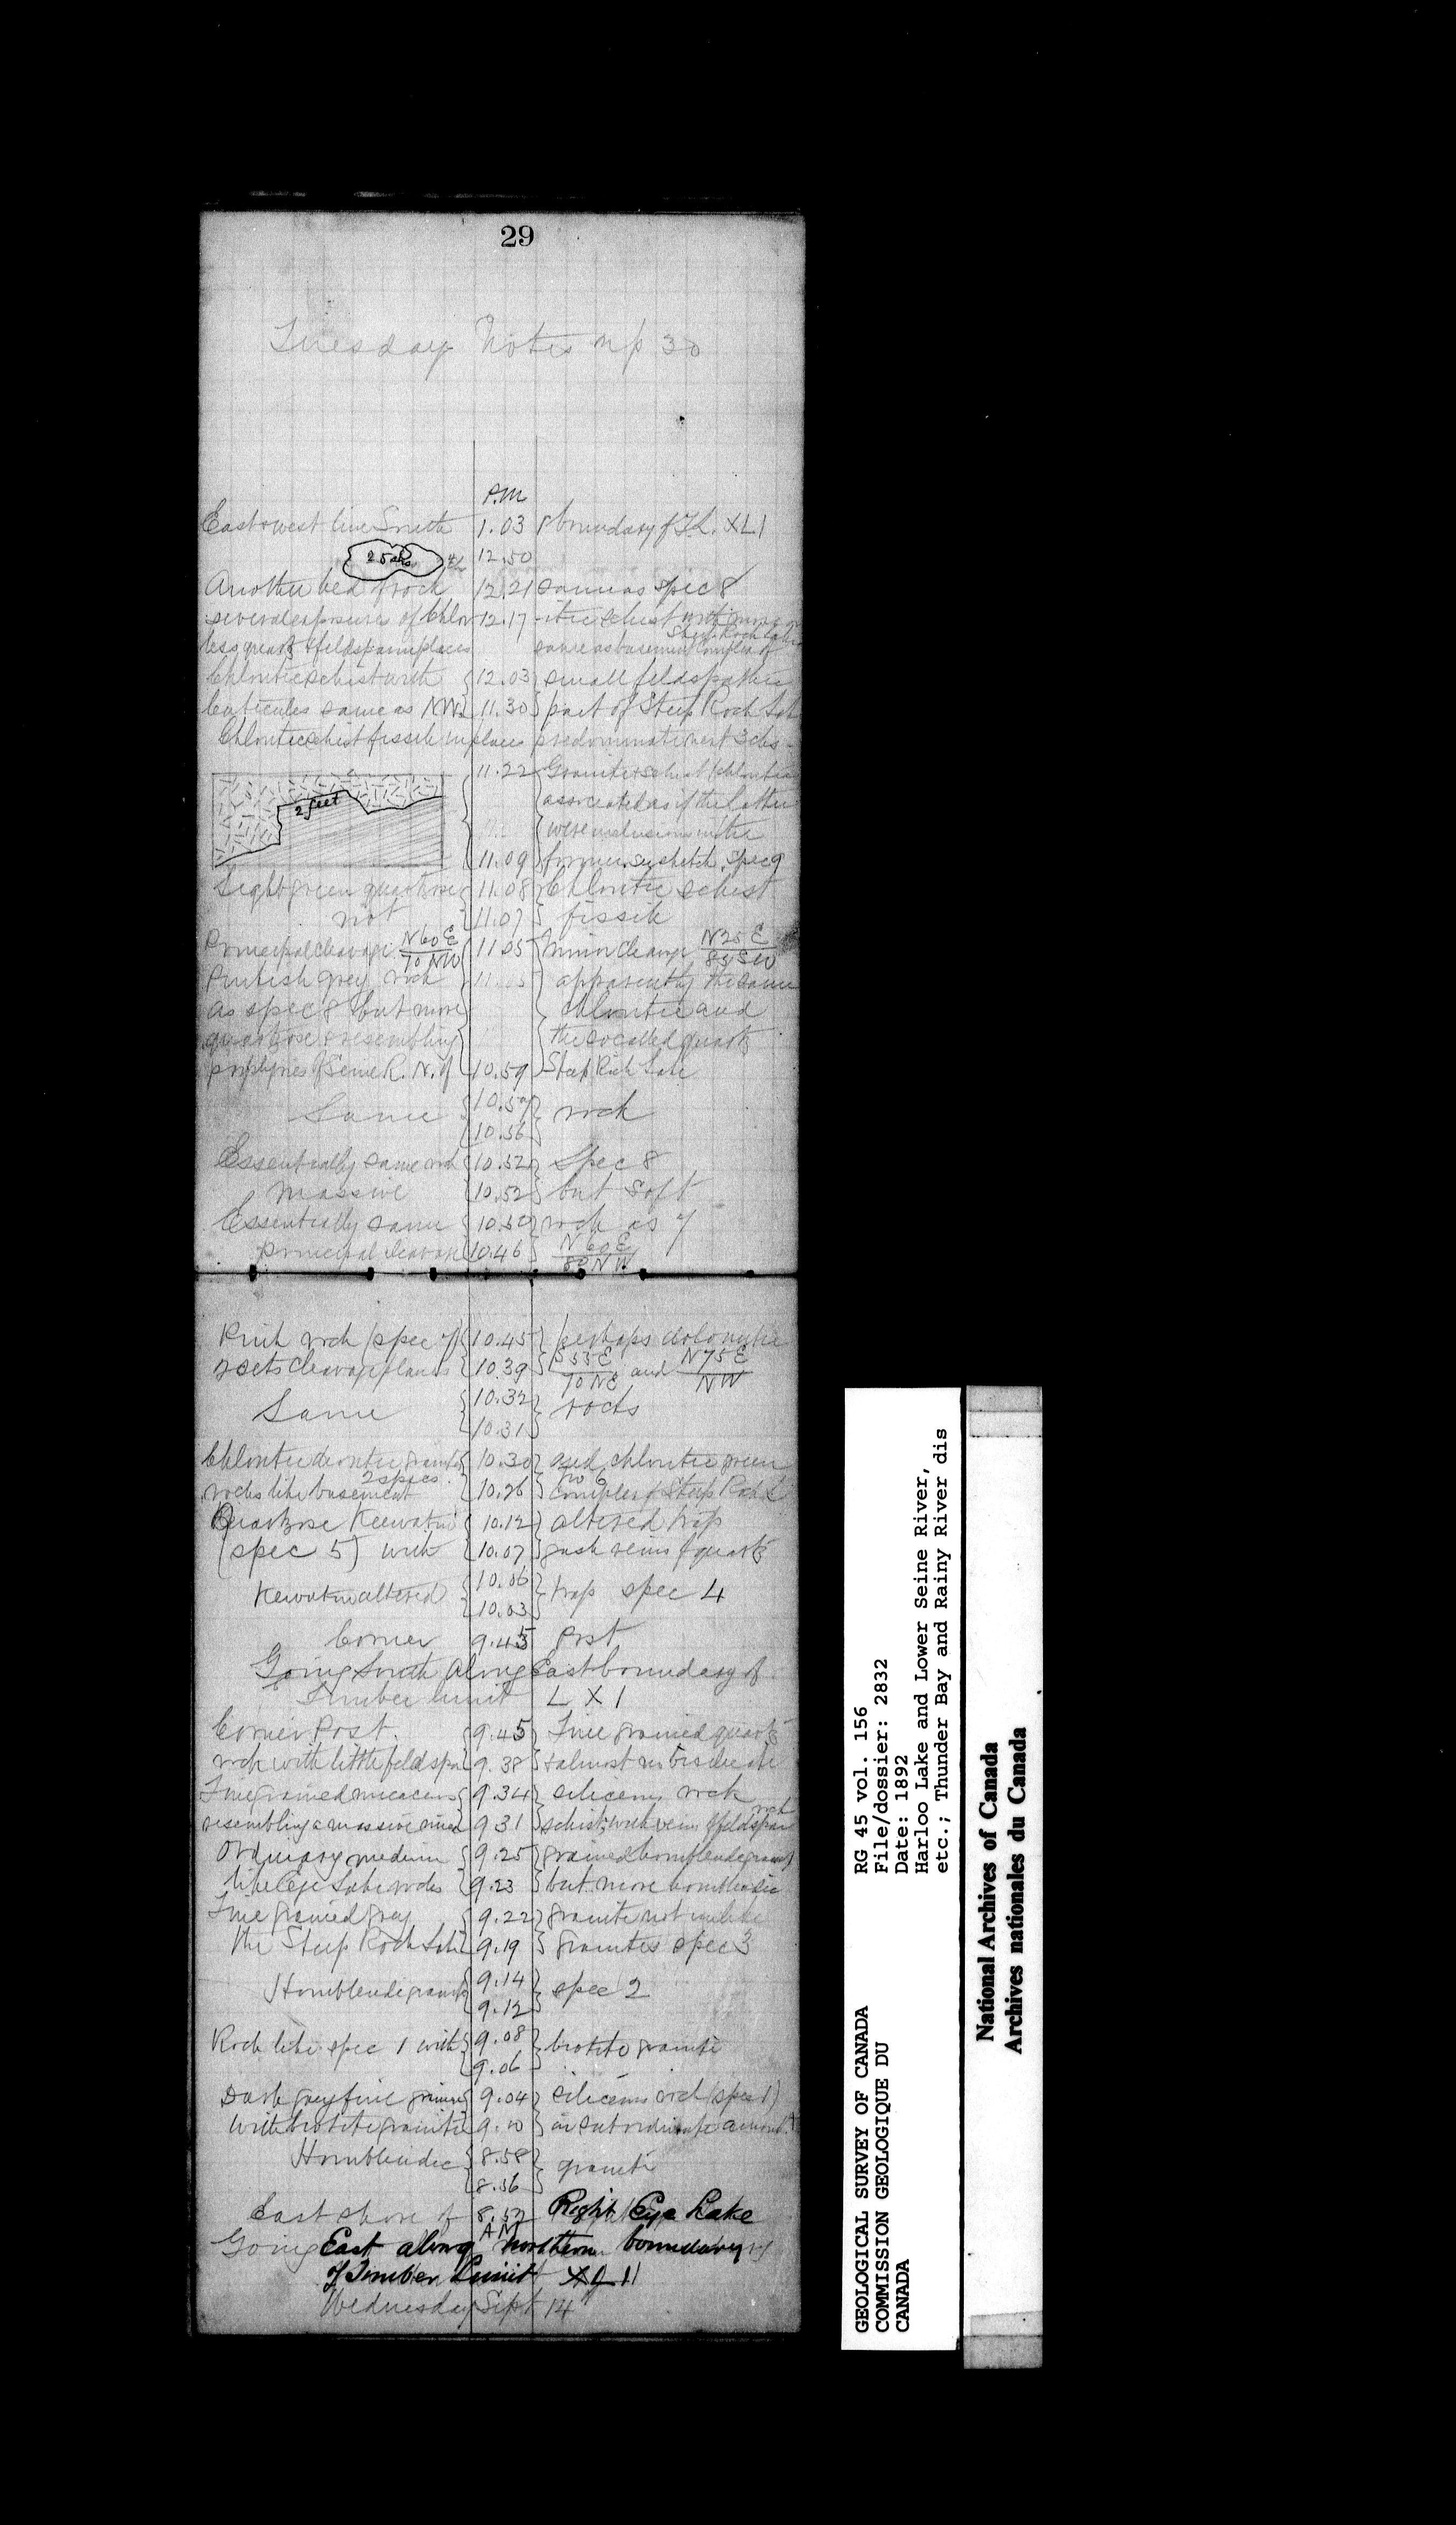 29
Tuesday Notes up 30
P.M
East & west line South 1.03 boundary of T.L. XLI
25 chs 12.50
Another bed of rock 12.21 same as spec 8
several exposures of Chlor 12.17 -itic schist with more or
less quartz & feldspar in places same as basement complex of Steep Rock Lake
Chlorite schist with 12.03 small feldspathic
lenticules same as NW. 11.30 part of Steep Rock Lake
Chlorite schist fissile in places predominate next 3 chs
11.22 Granite & schist (chloritic)
associated as if the latter
2 feet
were inclusions in the
11.09 former. See sketch. Spec 9
Light green quartzose 11.08 Chloritic schist
not 11.07 fissile
Principal cleavage N60E / 70 NW 11.05 Minor cleavage N25E / 85 SW
Pinkish grey rock apparently the same
as spec 8 but more chloritic and
quartzose & resembling the so called quartz
porphyries of Seine R. N. of 10.59 Steep Rock Lake
Same 10.57 rock
10.56
Essentially same rock 10.52 Spec 8
Massive 10.52 but soft
Essentially same 10.50 rock as 7
Principal cleavage 10.46 N 60 E / 80 N W.
Pink rock (spec 7) 10.45 perhaps dolomitic
2 sets cleavage planes 10.39 S 55 E / 70 NE and N 75 E / NW
Same 10.32 rocks
10.31
Chloritic granite 10.30 and chloritic green
rocks like basement 2 specs. 10.26 No 6 complex of Steep Rock L
Quartzose Keewatin 10.12 altered trap
(spec 5) with 10.07 gash veins of quartz
Keewatin altered 10.06 trap spec 4
10.03
Corner 9.45 Post
Going South along East boundary of
Timber limit L X I
Corner Post. 9.45 Fine grained quartz
rock with little feldspar 9.38 & almost no bisilicate
Fine grained micaceous 9.34 siliceous rock
resembling a massive mica 9.31 schist, with veins of feldspar rock
Ordinary medium 9.25 grained hornblende granite
like Eye Lake rocks 9.23 but more hornblendic
Fine grained grey 9.22 granite not unlike
the Steep Rock Lake 9.19 granites spec 3
Hornblende granite 9.14 spec 2
9.12
Rock like spec 1 with 9.08 biotite granite
9.06
Dark grey fine grained 9.04 siliceous rock (spec 1)
with biotite granite 9.00 in subordinate amount
Hornblendic 8.58 granite
8.56
East shore of 8.52 Right Eye Lake
A M
Going East along northern boundary
of Timber Limit XLII
Wednesday Sept 14
GEOLOGICAL SURVEY OF CANADA
COMMISSION GEOLOGIQUE DU
CANADA
RG 45 vol. 156
File/dossier: 2832
Date: 1892
Harloo Lake and Lower Seine River,
etc.; Thunder Bay and Rainy River dis
National Archives of Canada
Archives nationales du Canada